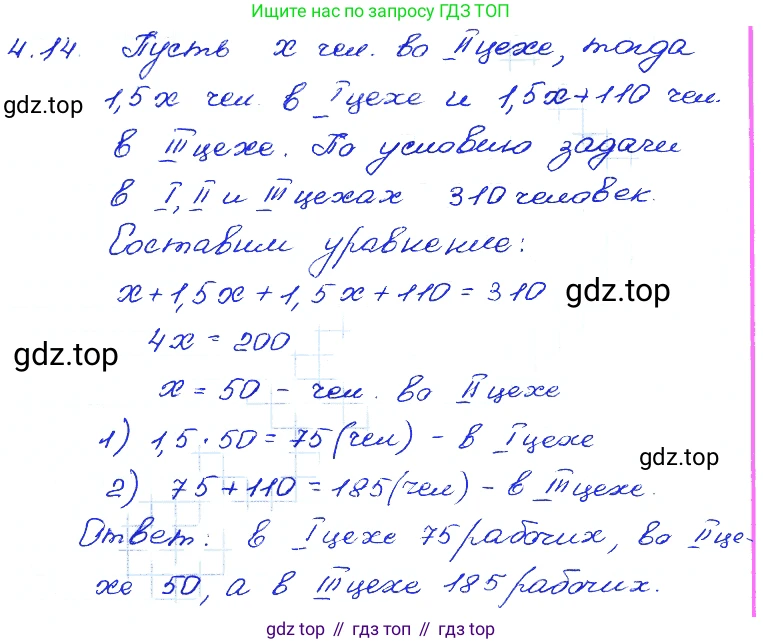 Ищите нас по запросу ГДЗ ТОП
4.14. Пусть х чел. во II цехе, тогда
gdz.top 1,5х чел. в I цехе и 1,5х+110 чел.
в III цехе. По условию задачи
в I, II и III цехах 310 человек.
Составим уравнение:
х+1,5х+1,5х+110=310 gdz.top
4х=200
gdz.top
х=50 - чел. во II цехе
1) 1,5·50=75(чел) - в I цехе
gdz.top
2) 75+110=185(чел) - в III цехе.
Ответ: в I цехе 75 рабочих, во II це-
хе 50, а в III цехе 185 рабочих.
gdz.top // гдз.топ // gdz.top